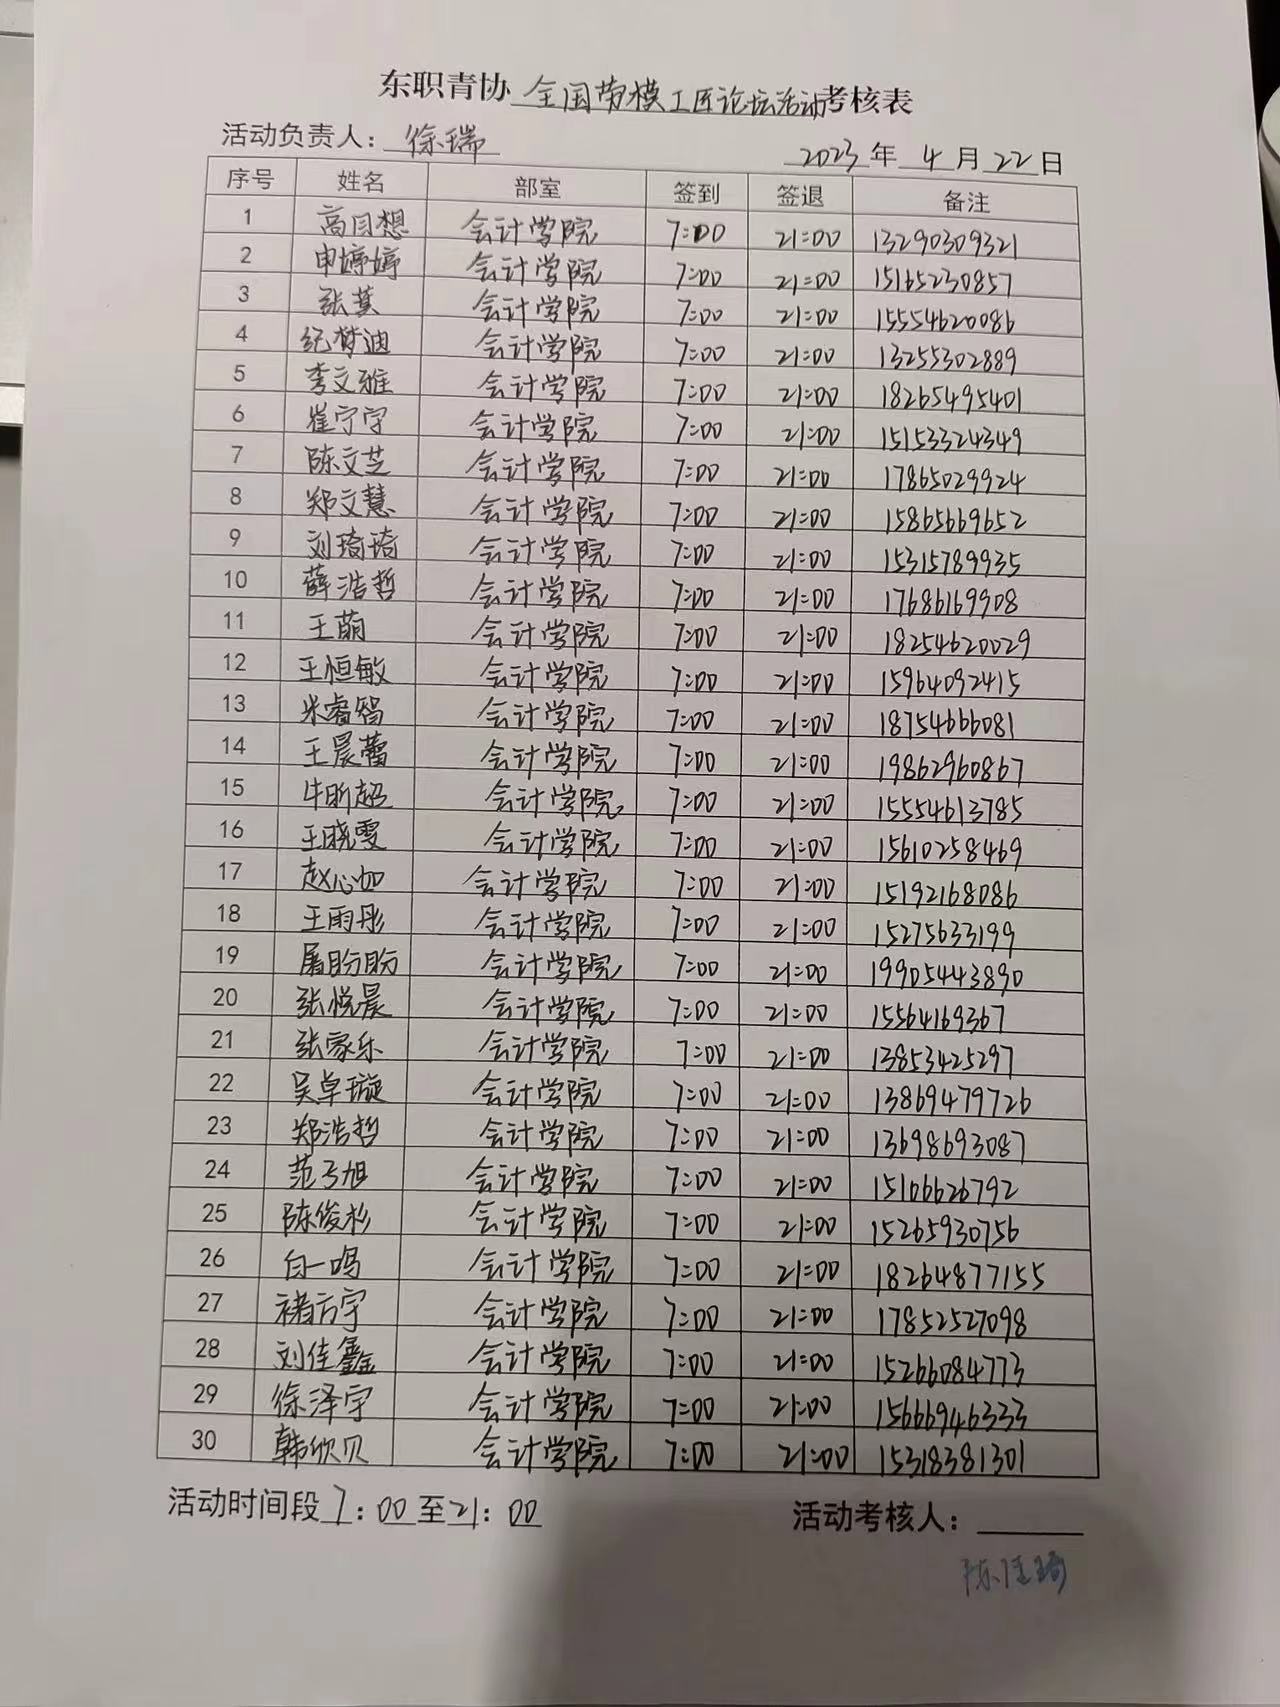 东职青协 全国劳模工匠论坛活动考核表
活动负责人：徐瑞 2023年 4月22日
序号 姓名 部室 签到 签退 备注
1 高目想 会计学院 7:00 21:00 13290309321
2 申婷婷 会计学院 7:00 21:00 15165230857
3 张萁 会计学院 7:00 21:00 15554620086
4 纪梦迪 会计学院 7:00 21:00 13255302889
5 李文雅 会计学院 7:00 21:00 18265495401
6 崔宁宇 会计学院 7:00 21:00 15153324349
7 陈文芝 会计学院 7:00 21:00 17865029924
8 郑文慧 会计学院 7:00 21:00 15865669652
9 刘琦琦 会计学院 7:00 21:00 15315789935
10 薛浩哲 会计学院 7:00 21:00 17686169908
11 王萌 会计学院 7:00 21:00 18254620029
12 王恒敏 会计学院 7:00 21:00 15964092415
13 米睿智 会计学院 7:00 21:00 18754666081
14 王晨蕾 会计学院 7:00 21:00 19862960867
15 牛昕超 会计学院 7:00 21:00 15554613785
16 王晓雯 会计学院 7:00 21:00 15610258469
17 赵心如 会计学院 7:00 21:00 15192168086
18 王雨彤 会计学院 7:00 21:00 15275633199
19 屠盼盼 会计学院 7:00 21:00 19905443890
20 张悦晨 会计学院 7:00 21:00 15564169367
21 张家乐 会计学院 7:00 21:00 13853425297
22 吴卓璇 会计学院 7:00 21:00 13869479726
23 郑浩哲 会计学院 7:00 21:00 13698693087
24 范子旭 会计学院 7:00 21:00 15106626792
25 陈俊杉 会计学院 7:00 21:00 15265930756
26 白一鸣 会计学院 7:00 21:00 18264877155
27 褚方宇 会计学院 7:00 21:00 17852527098
28 刘佳鑫 会计学院 7:00 21:00 15266084773
29 徐泽宇 会计学院 7:00 21:00 15666946333
30 韩欣贝 会计学院 7:00 21:00 15318381301
活动时间段7：00至21：00 活动考核人：
陈佳琦